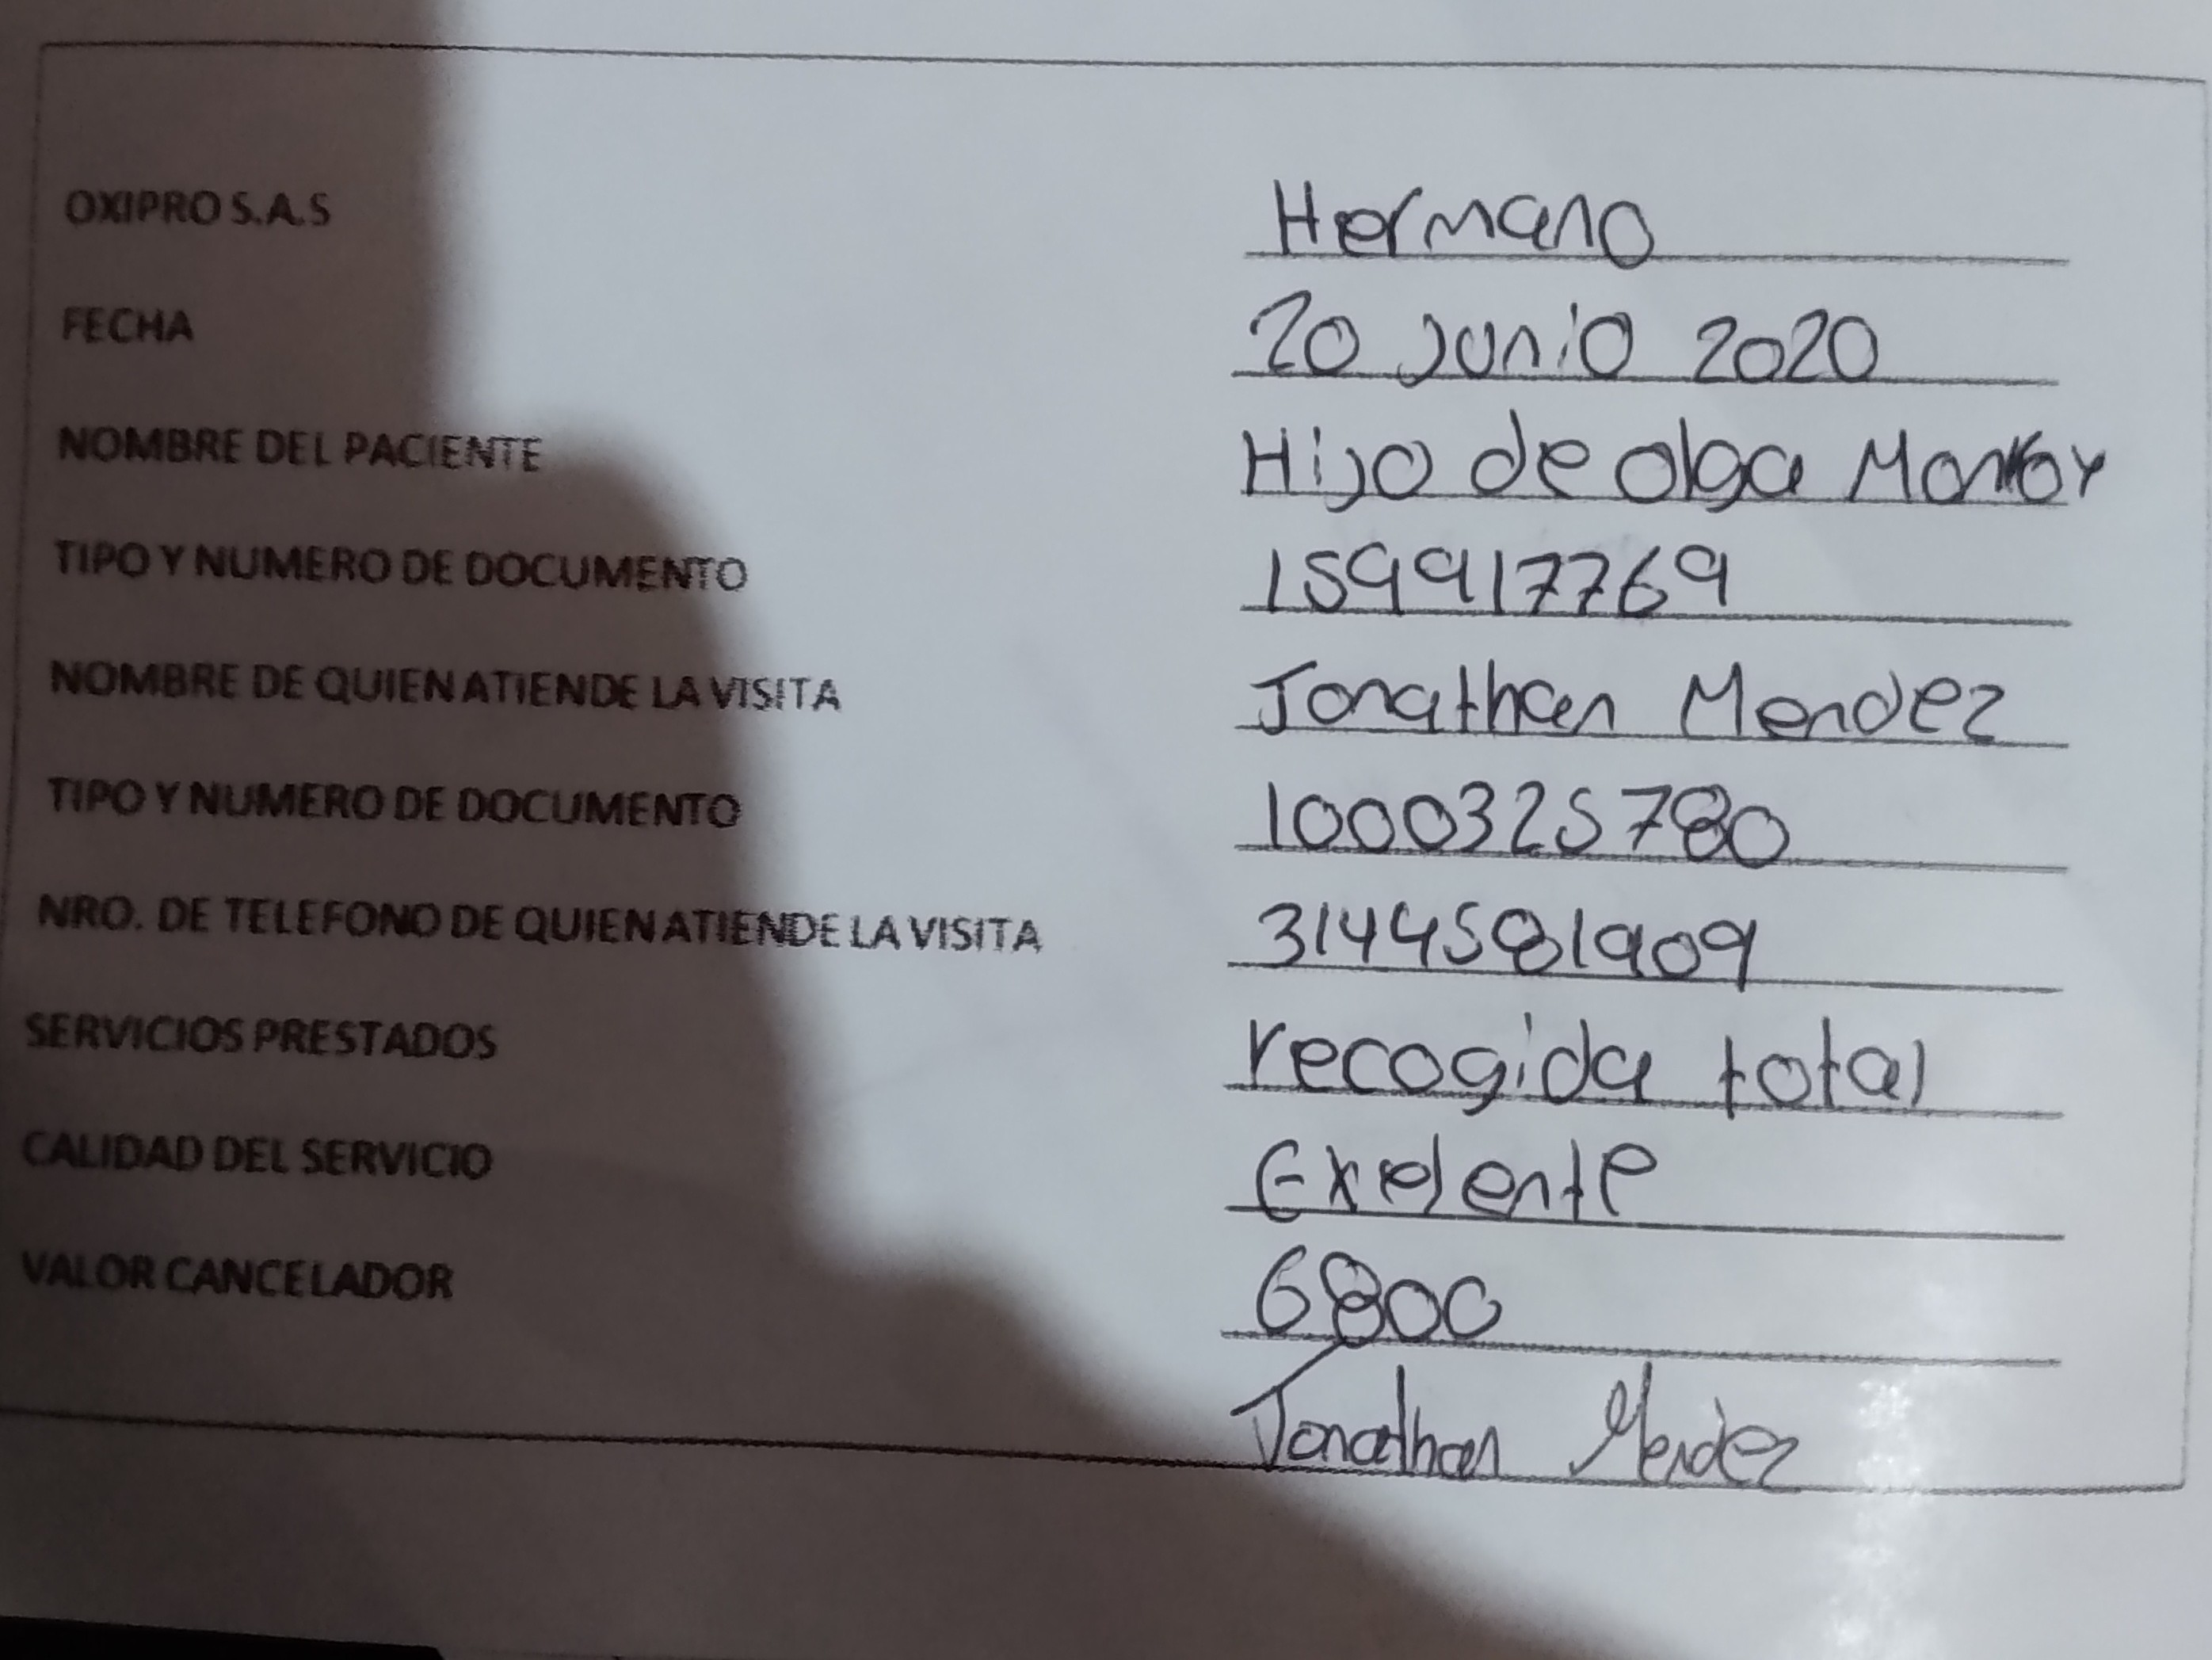 OXIPRO S.A.S Hermano
FECHA 20 Junio 2020
NOMBRE DEL PACIENTE Hijo de olga
TIPO Y NUMERO DE DOCUMENTO 1599917769
NOMBRE DE QUIEN ATIENDE LA VISITA Jonathan Mendez
TIPO Y NUMERO DE DOCUMENTO 1000325780
NRO. DE TELEFONO DE QUIEN ATIENDE LA VISITA 3144581909
SERVICIOS PRESTADOS recogida total
CALIDAD DEL SERVICIO Exelente
VALOR CANCELADOR 6800
Jonathan Mendez